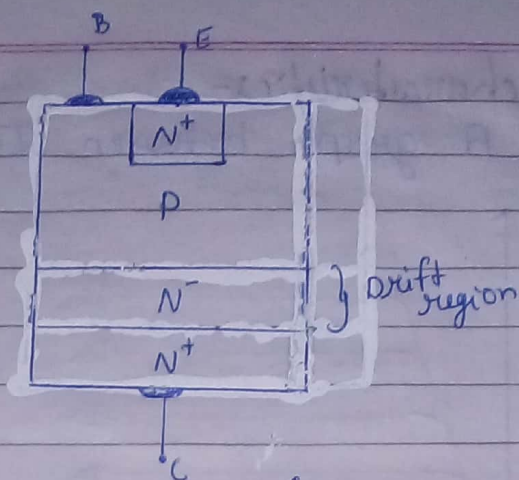 B
E
N+
P
N-
Drift
region
N+
C